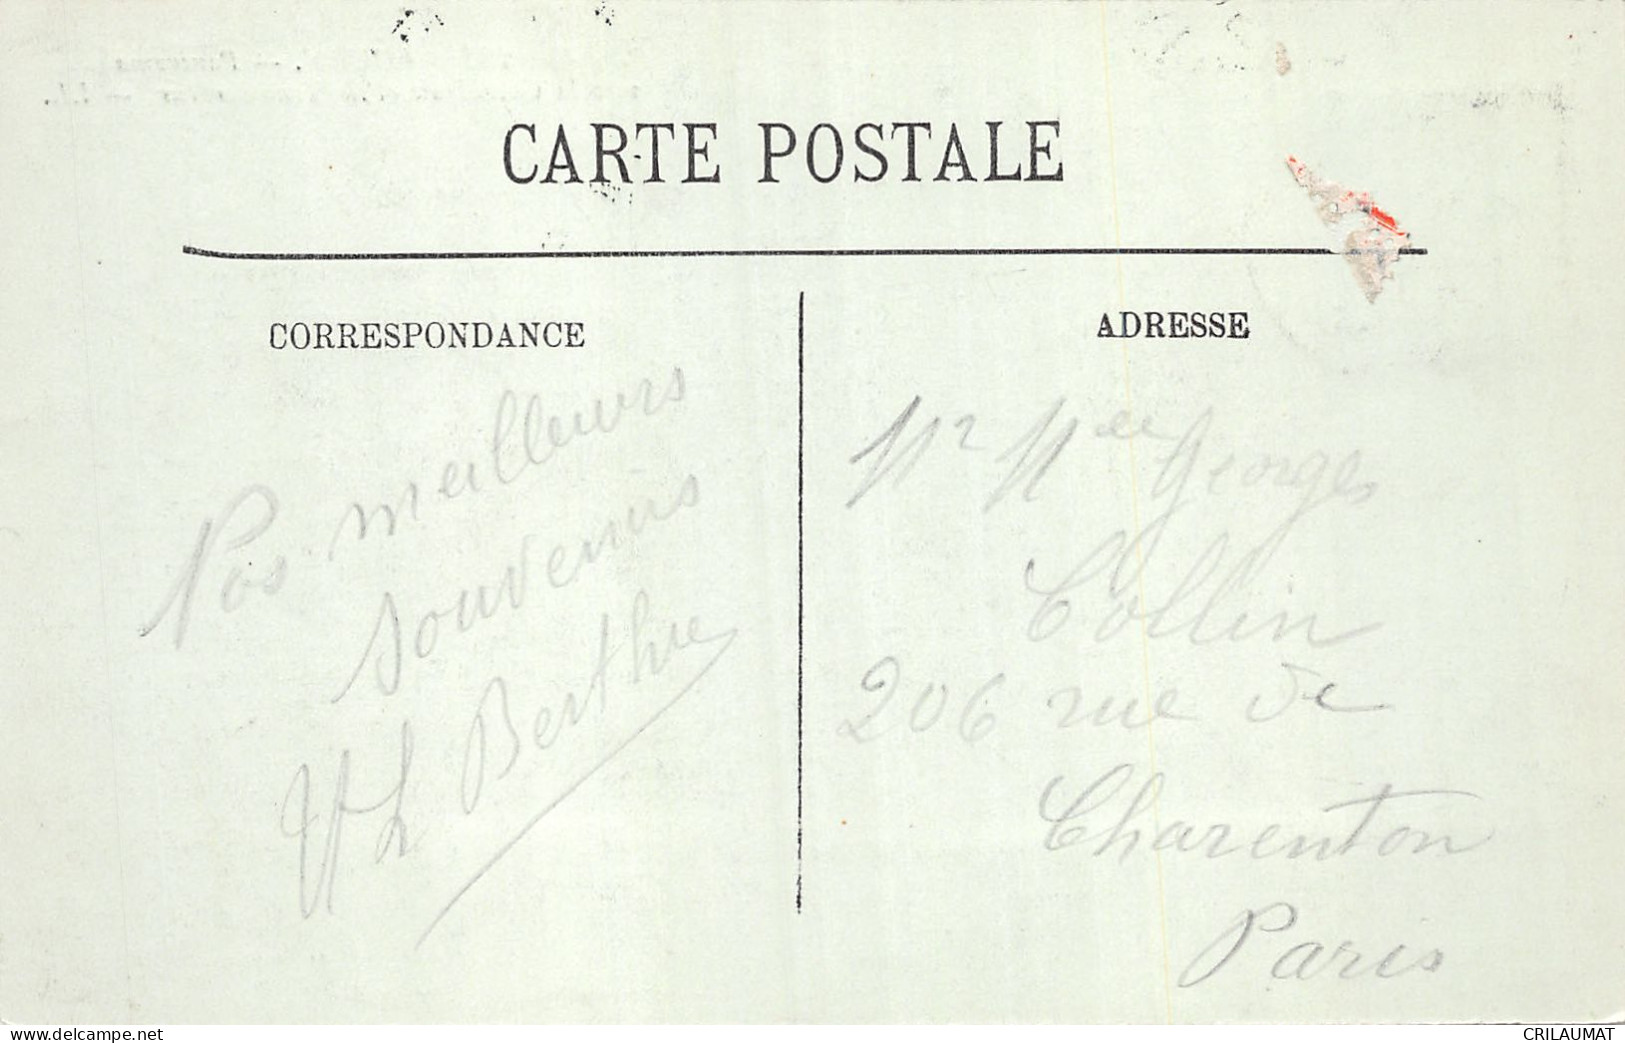 CARTE POSTALE
CORRESPONDANCE
Nos meilleurs
souvenirs
Berthe
ADRESSE
Mr Mme Georges
Collin
206 rue de
Charenton
Paris
www.delcampe.net
CRILAUMAT